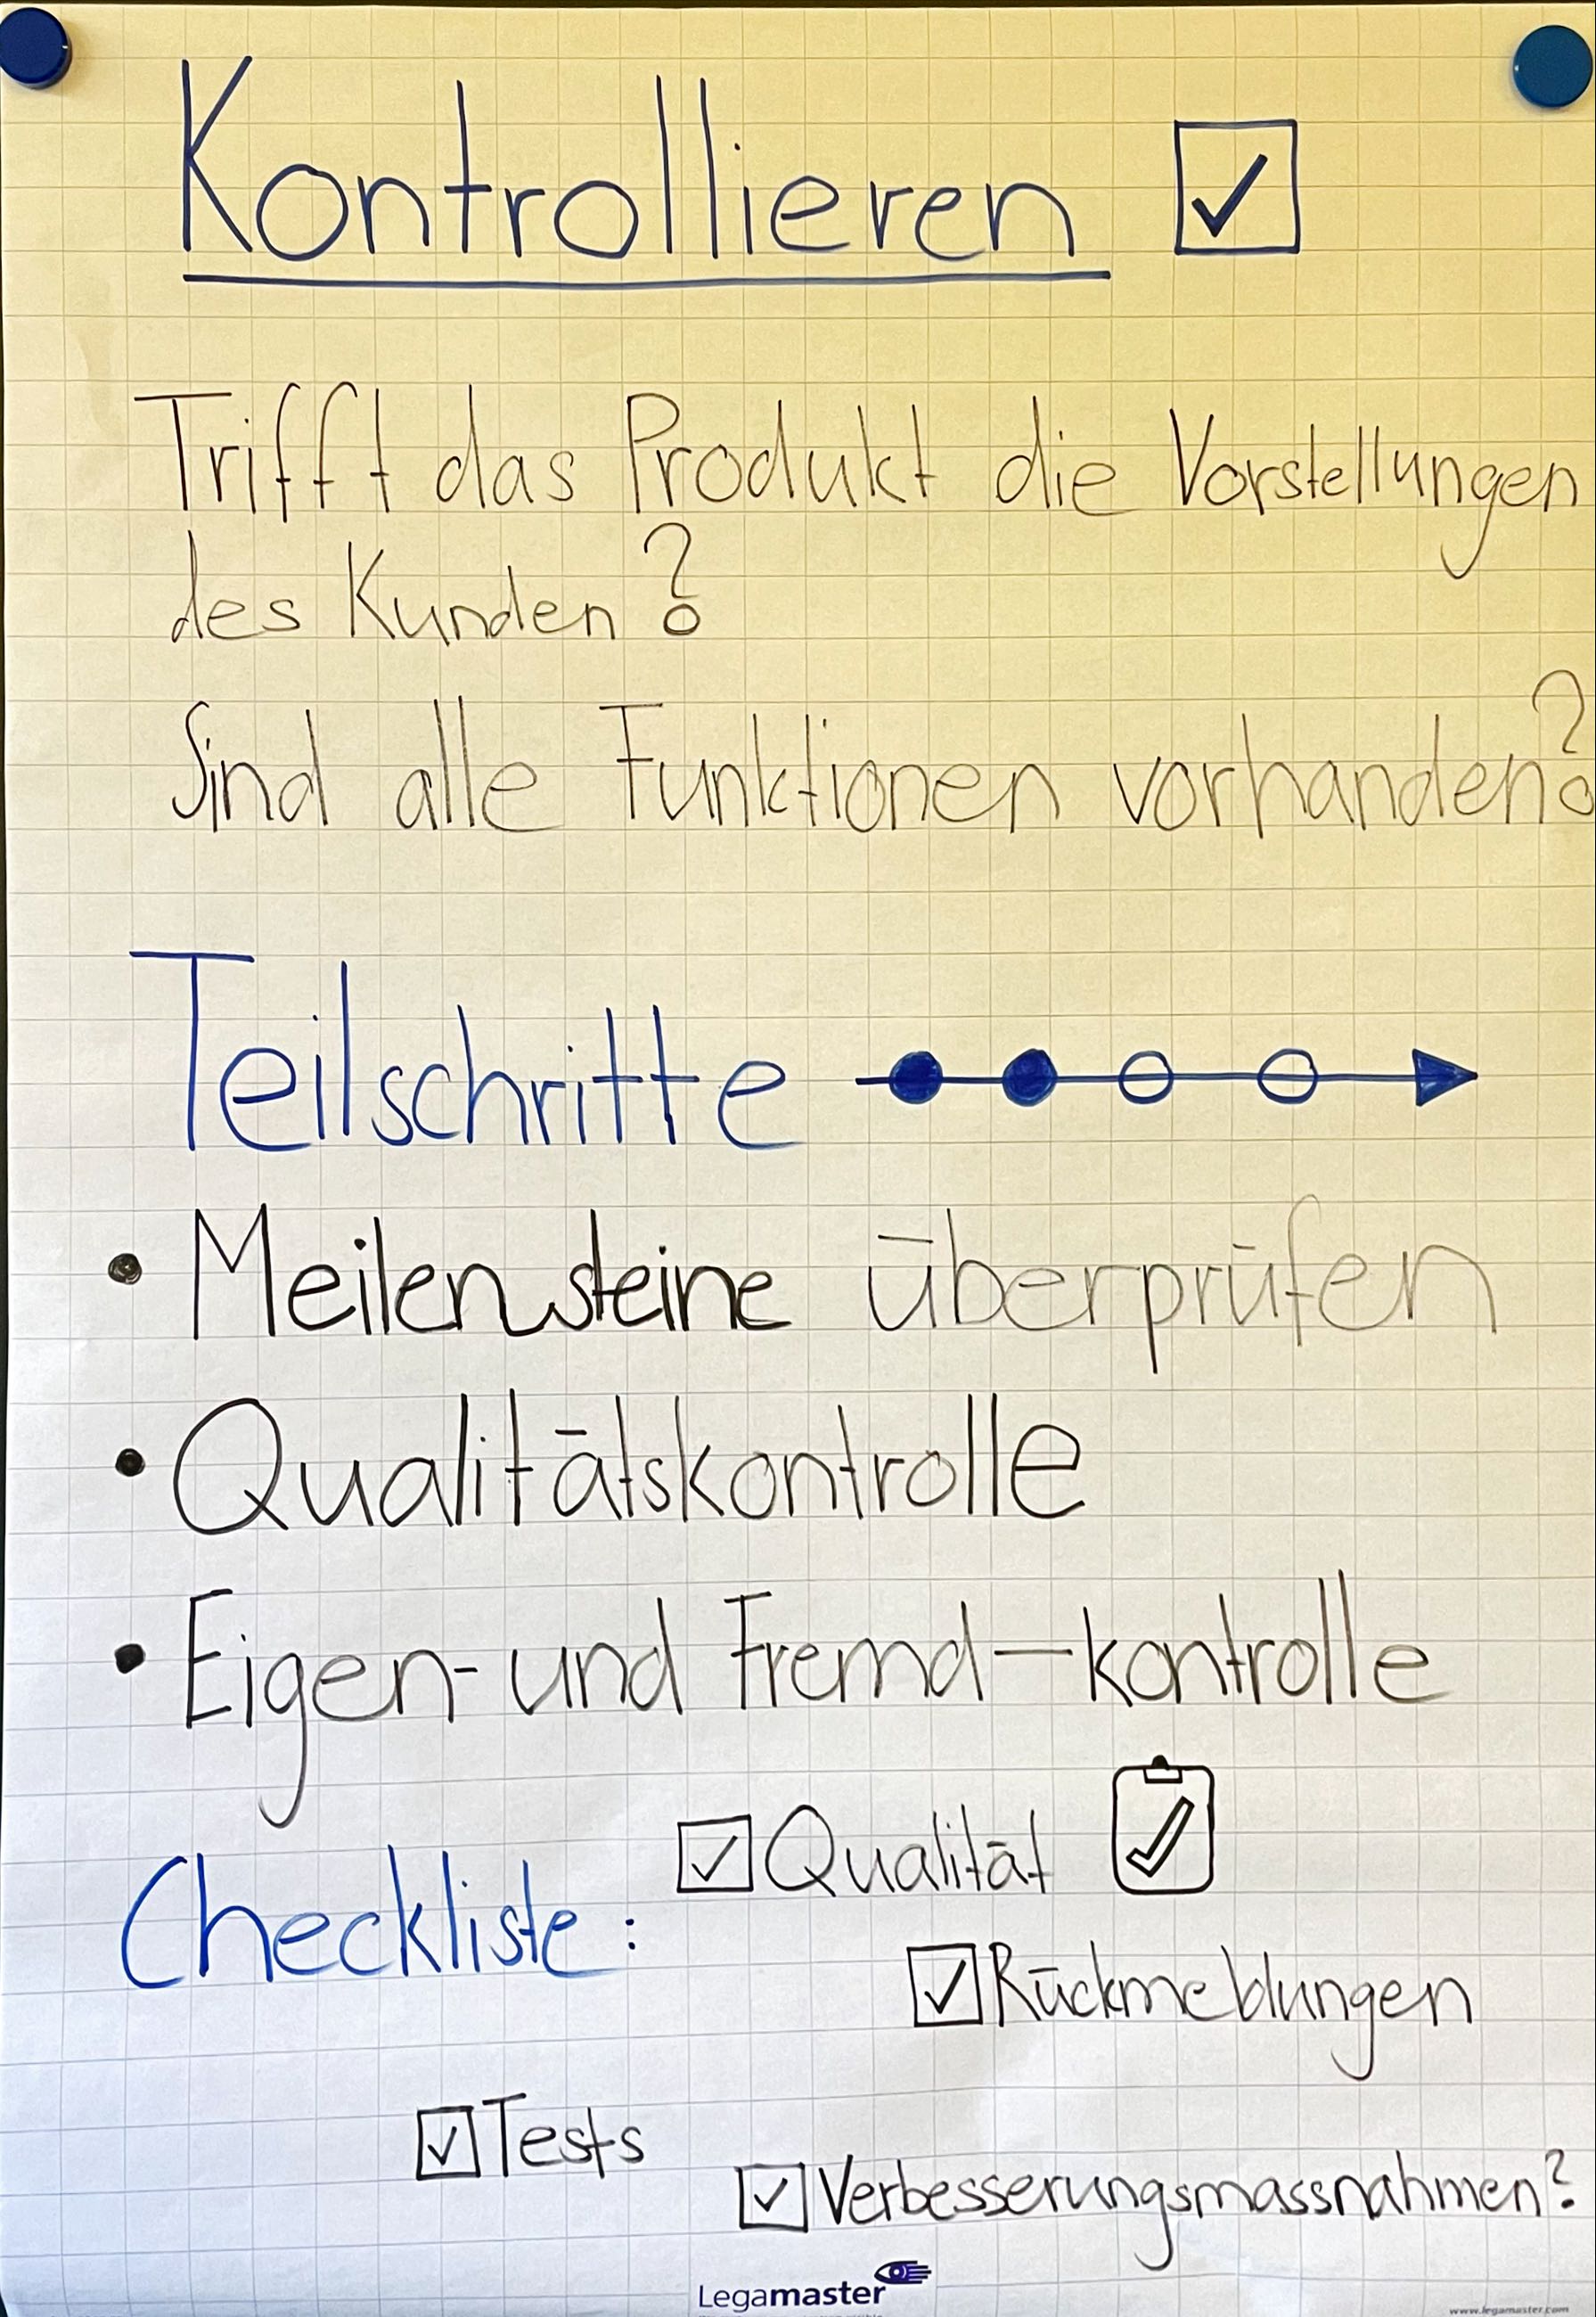 Kontrollieren
Trifft das Produkt die Vorstellungen
des Kunden?
Sind alle Funktionen vorhanden?
Teilschritte
• Meilensteine überprüfen
• Qualitätskontrolle
• Eigen- und Fremd-kontrolle
Checkliste:
Qualität
Rückmeldungen
Tests
Verbesserungsmassnahmen?
Legamaster
www.legamaster.com